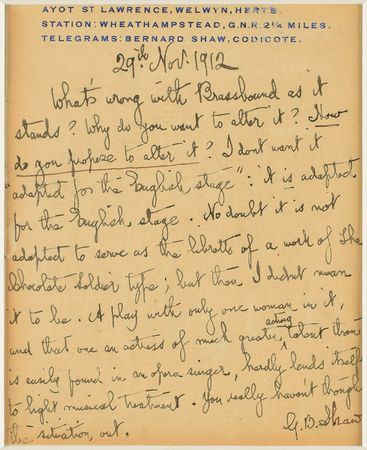 AYOT ST LAWRENCE, WELWYN, HERTS.
STATION: WHEATHAMPSTEAD, G.N.R. 2¼ MILES.
TELEGRAMS: BERNARD SHAW, CODICOTE.
29th Nov. 1912
What's wrong with Brassbound as it
stands? Why do you want to alter it? How
do you propose to alter it? I dont want it
"adapted for the English stage": it is adapted
for the English stage. No doubt it is not
adapted to serve as the libretto of a work of the
Chocolate Soldier type; but then I didnt mean
it to be. A play with only one woman in it,
and that one an actress of much greater acting talent than
is easily found in an opera singer, hardly lends itself
to light musical treatment. You really havent thought
the situation out.
G.B. Shaw